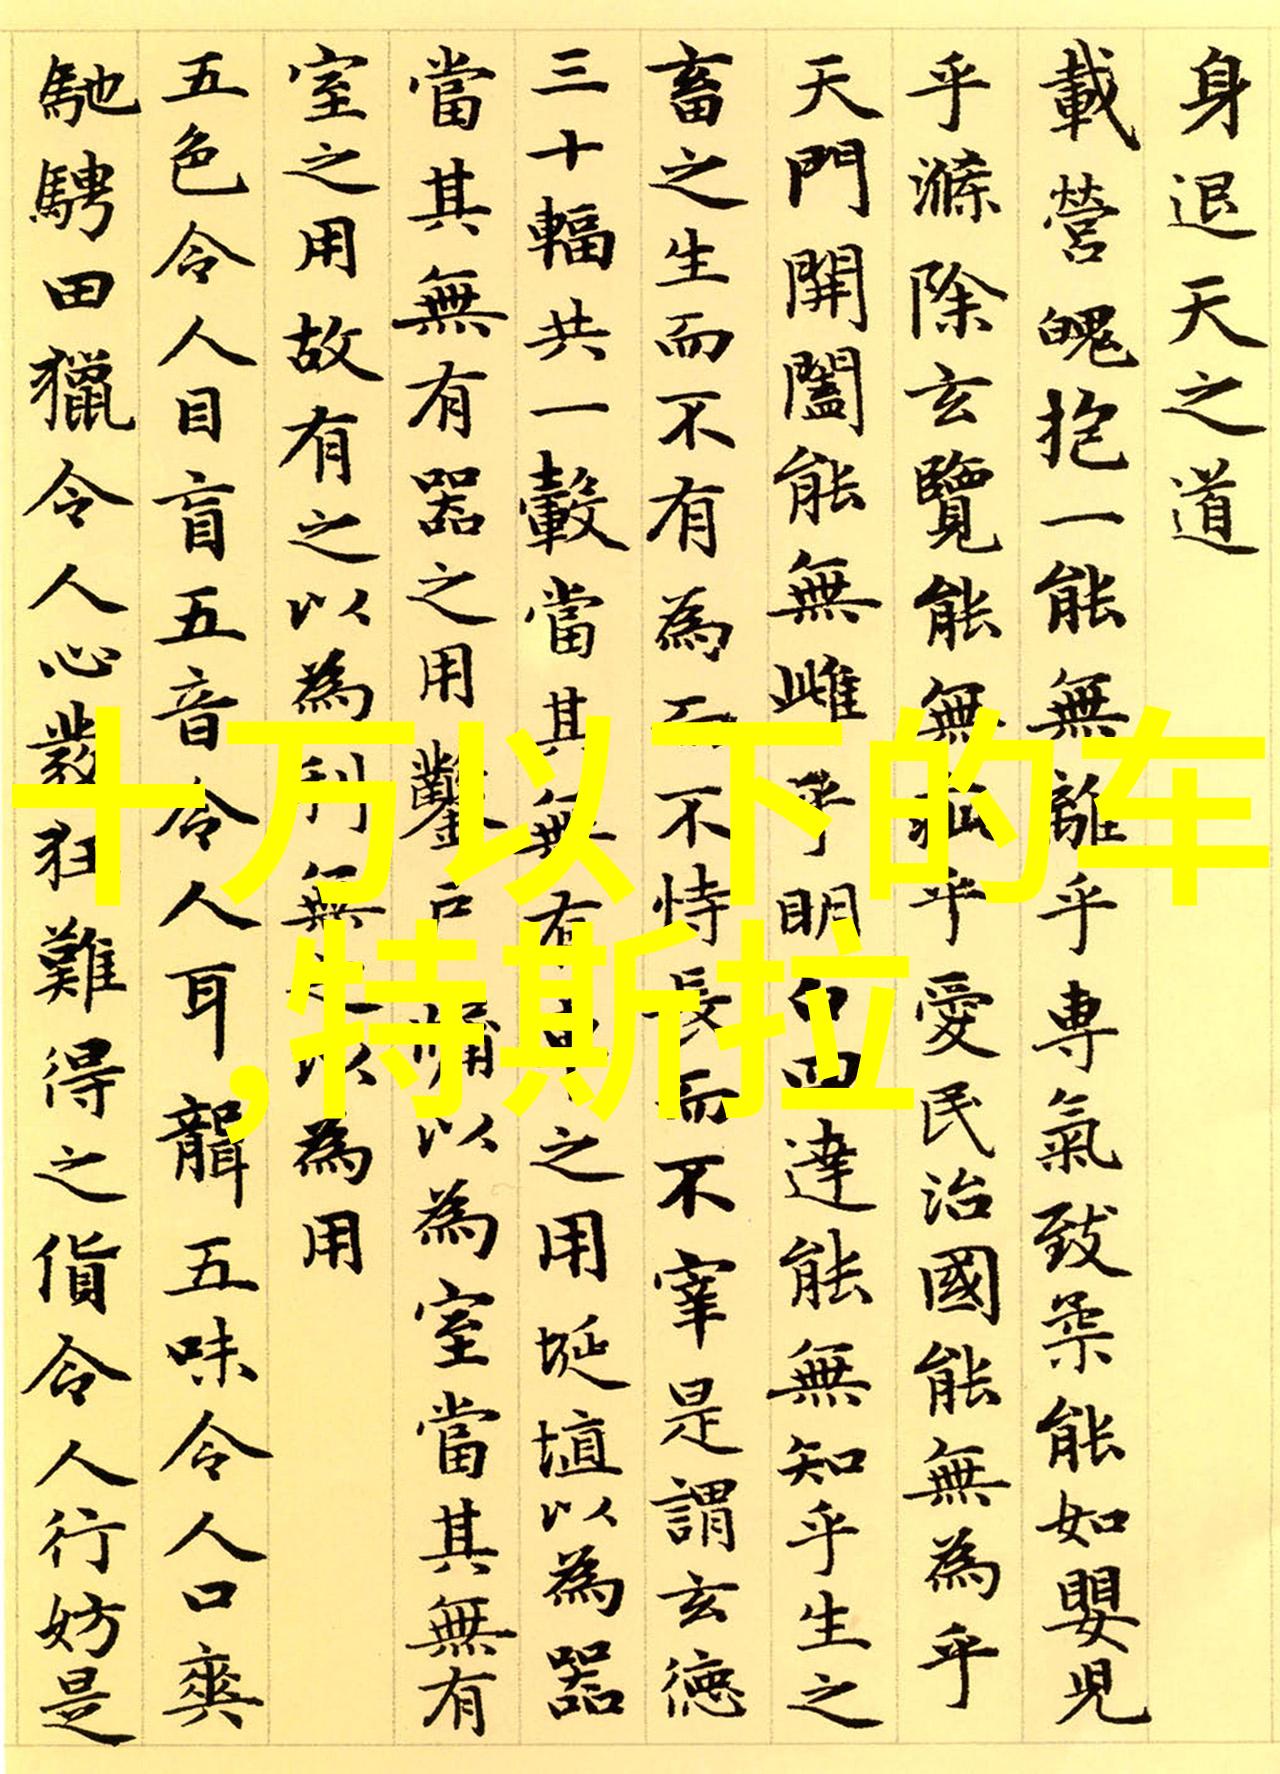 身退天之道
載營魄抱一能無離乎專氣致柔能如嬰兒
乎滌除玄覽能無疵乎愛民治國能無為乎
天門開闔能無雌乎明白四達能無知乎生之
畜之生而不有為而不恃長而不宰是謂玄德
三十輻共一轂當其無有車之用埏埴以為器
當其無有器之用鑿戶牖以為室當其無有
室之用故有之以為利無之以為用
五色令人目盲五音令人耳聾五味令人口爽
馳騁田獵令人心發狂難得之貨令人行妨是
十万以下的车
,特斯拉